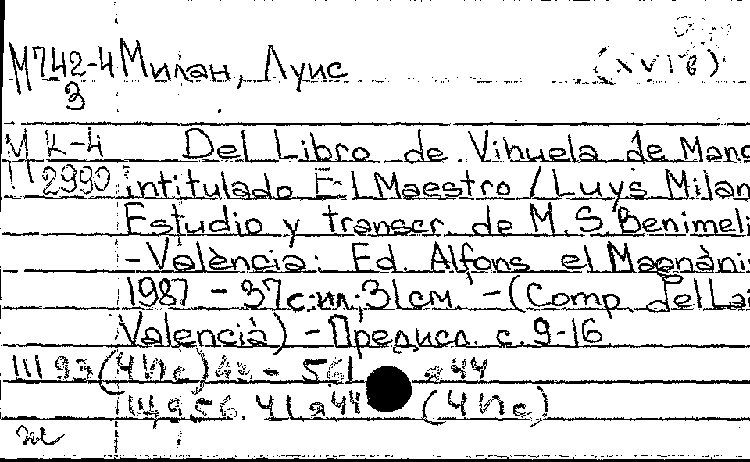 М742-4 Милан, Луис (XVI в)
3
М К-4 Del Libro de Vihuela de Mano
2990 intitulado El Maestro / Luys Milan
Estudio y transcr. de M. S. Benimeli
- València: Ed. Alfons el Magnàni
1987 - 37с: ил; 31см. - (Comp. del Lai
Valencià) - Предисл. с. 9-16
Щ93(4Ис)43 - 561 я44
Щ956.41я44 (4Ис)